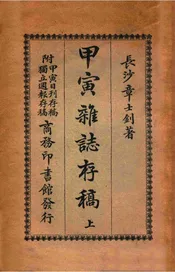 長沙章士釗著
甲寅雜誌存稿 上
附甲寅日刊存稿
獨立週報存稿
商務印書館發行